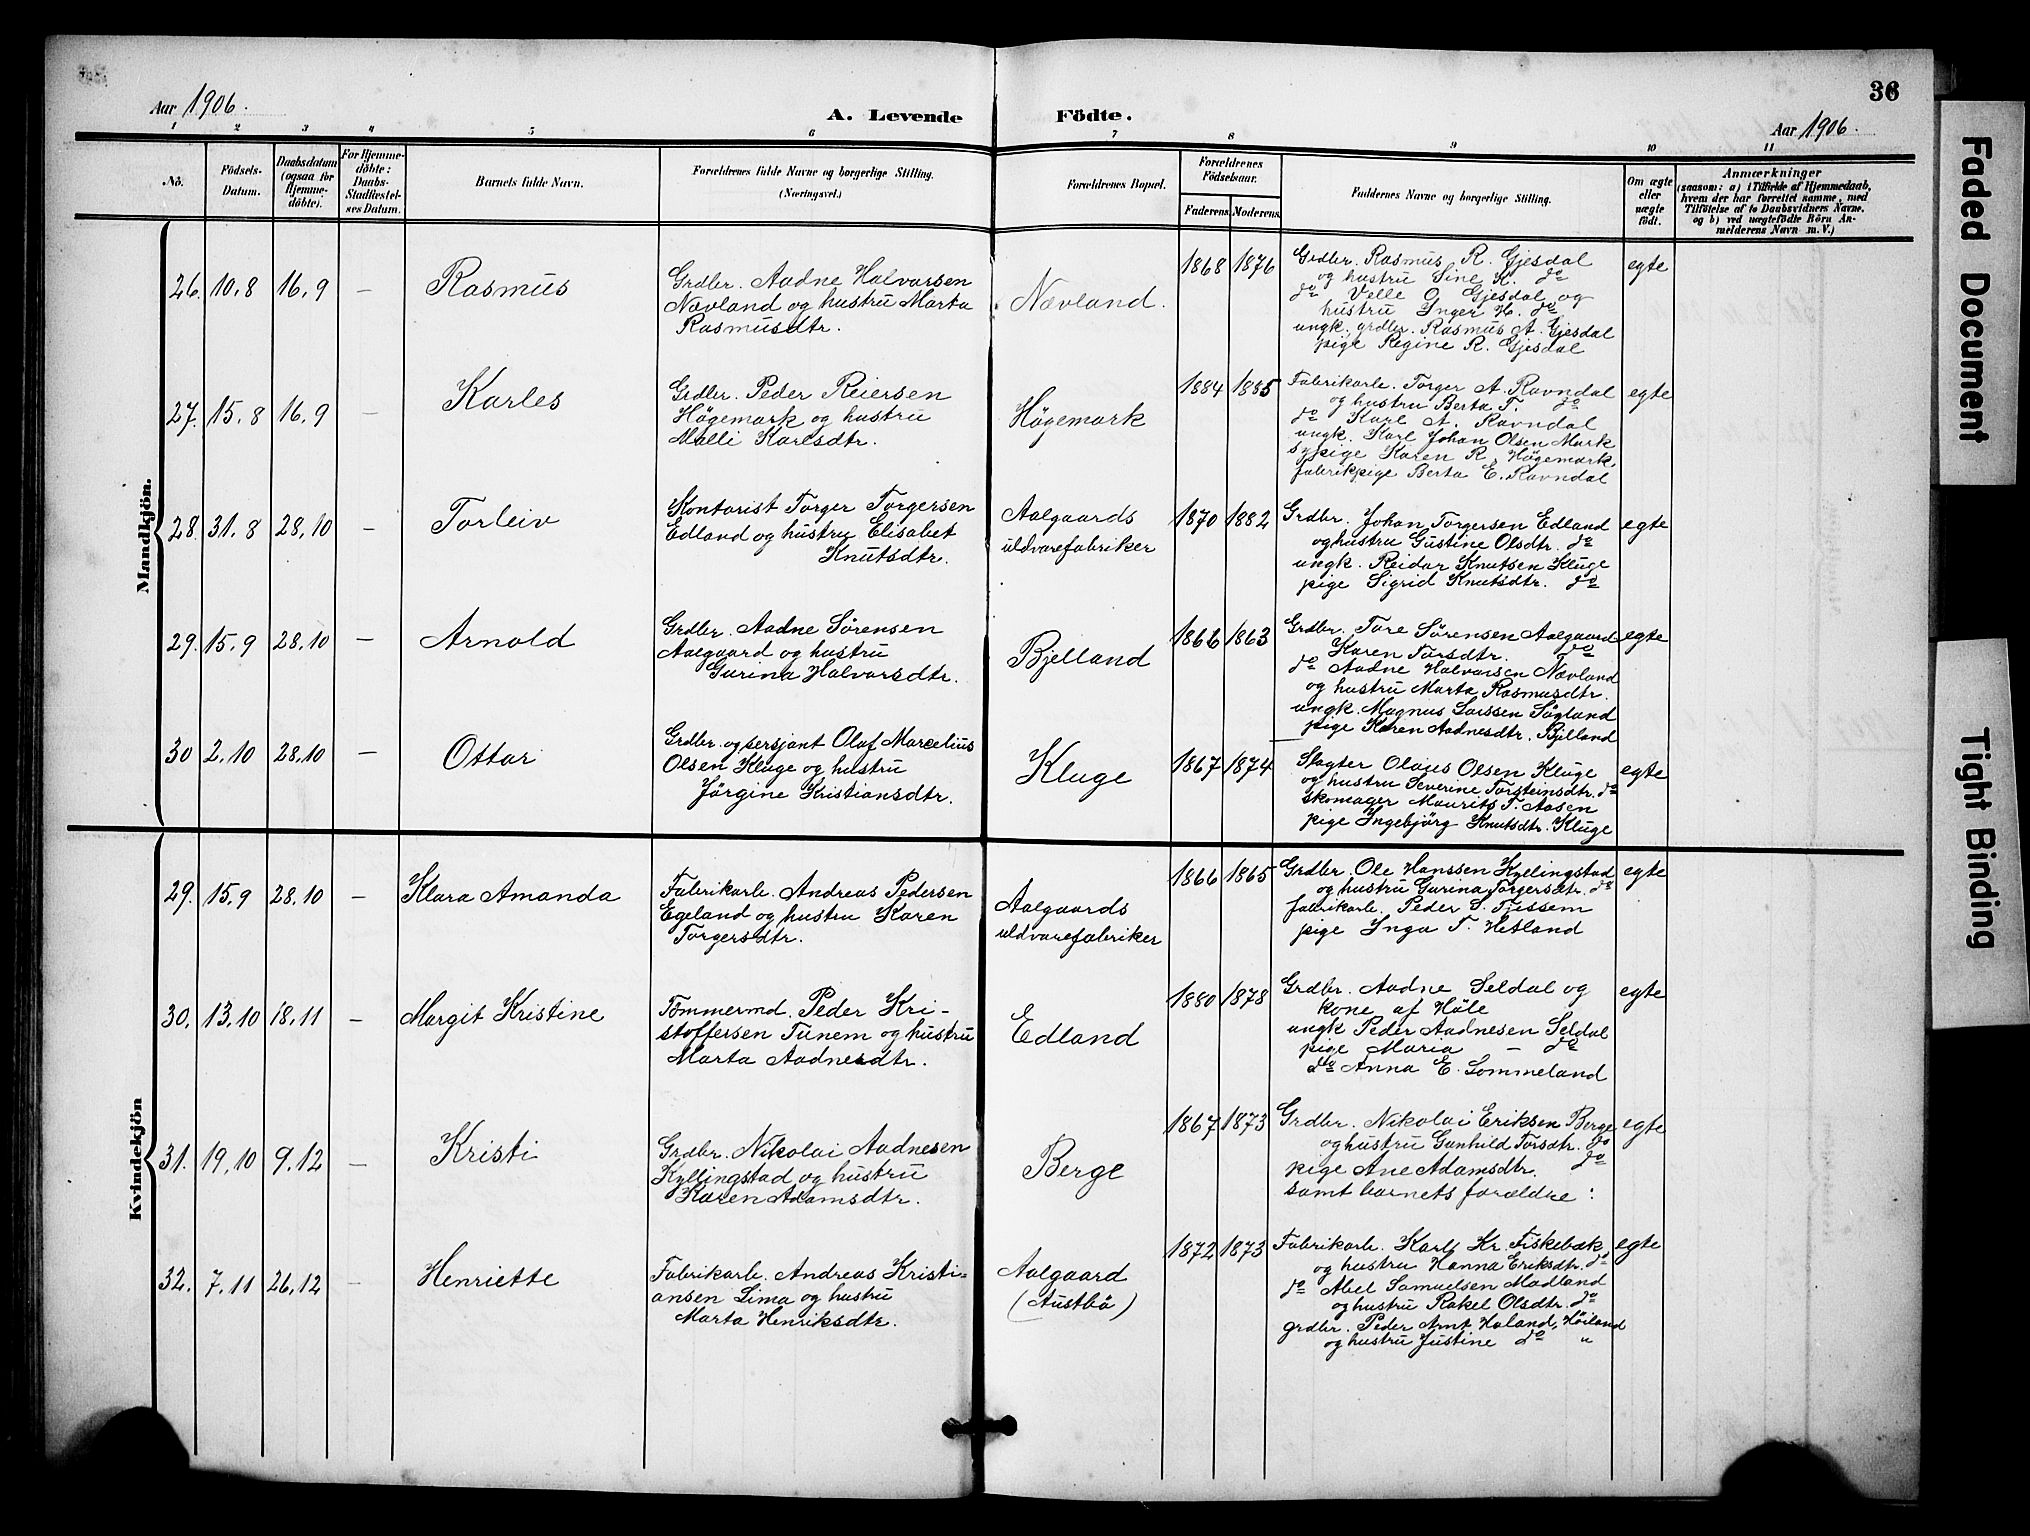 36
Aar 1906.
A. Levende Födte.
Aar 1906.
1 2 3 4 5 6 7 8 9 10 11
No.
Födsels-
Datum.
Daabsdatum
(ogsaa for
Hjemme-
döbte).
For Hjemme-
döbte:
Daabs-
Stadfæstel-
ses Datum.
Barnets fulde Navn.
Forældrenes fulde Navne og borgerlige Stilling.
(Næringsvei.)
Forældrenes Bopæl.
Forældrenes
Födselsaar.
Faderens Moderens
Faddernes Navne og borgerlige Stilling.
Om ægte
eller
uægte
födt.
Anmærkninger
(saasom: a) i Tilfælde af Hjemmedaab,
hvem der har forrettet samme, med
Tilföielse af to Daabsvidners Navne,
og b) ved uægtefödte Börn An-
melderens Navn m. V.)
Mandkjön.
26. 10.8 16.9 — Rasmus
Grdbr. Aadne Halvorsen
Nævland og hustru Marta
Rasmusdtr.
Nævland.
1868 1876
Grdbr. Rasmus R. Gjesdal
og hustru Sine K. do
do Velle O. Gjesdal og
hustru Inger H. do
ungk. grdbr. Rasmus A. Gjesdal
pige Regine R. Gjesdal
egte
27. 15.8 16.9 — Karles
Grdbr. Peder Reiersen
Högemark og hustru
Malli Karlsdtr.
Högemark
1884 1885
Fabrikarb. Torger A. Ravndal
og hustru Berta T. do
do Karl A. Ravndal
ungk. Karl Johan Olsen Mark
sypige Karen R. Högemark,
fabrikpige Berta E. Ravndal
egte
28. 31.8 28.10 — Torleiv
Kontorist Torger Torgersen
Edland og hustru Elisabet
Knutsdtr.
Aalgaards
uldvarefabriker
1870 1882
Grdbr. Johan Torgersen Edland
og hustru Gustine Olsdtr. do
ungk. Reidar Knutsen Kluge
pige Sigrid Knutsdtr. do
egte
29. 15.9 28.10 — Arnold
Grdbr. Aadne Sörensen
Aalgaard og hustru
Gurina Halvorsdtr.
Bjelland
1866 1863
Grdbr. Tore Sörensen Aalgaard
Karen Torsdtr. do
do Aadne Halvorsen Nævland
og hustru Marta Rasmusdtr.
ungk. Magnus Larssen Sögland
pige Karen Aadnesdtr. Bjelland
egte
30 2.10 28.10 — Ottar
Grdbr. og sersjant Olaf Marcelius
Olsen Kluge og hustru
Jörgine Kristiansdtr.
Kluge
1867 1874
Slagter Olaus Olsen Kluge
og hustru Severine Torsteinsdtr. do
skomager Maurits T. Aasen
pige Ingebjörg Knutsdtr. Kluge
egte
Kvindekjön
29. 15.9 28.10 — Klara Amanda
Fabrikarb. Andreas Pedersen
Egeland og hustru Karen
Torgersdtr.
Aalgaards
uldvarefabriker
1866 1865
Grdbr. Ole Hanssen Kyllingstad
og hustru Gurina Torgersdtr. do
fabrikarb. Peder S. Tjessem
pige Inga T. Hetland
egte
30. 13.10 18.11 — Margit Kristine
Tömmermd. Peder Kri-
stoffersen Tunem og hustru
Marta Aadnesdtr.
Edland
1880 1878
Grdbr. Aadne Seldal og
kone af Höle
ungk Peder Aadnesen Seldal
pige Maria — do
do Anna E. Lommeland
egte
31. 19.10 9.12 — Kristi
Grdbr. Nikolai Aadnesen
Kyllingstad og hustru
Karen Adamsdtr.
Berge
1867 1873
Grdbr. Nikolai Eriksen Berge
og hustru Gunhild Torsdtr. do
pige Ane Adamsdtr. do
samt barnets forældre.
egte
32. 7.11 26.12 — Henriette
Fabrikarb. Andreas Kristi-
ansen Lima og hustru
Marta Henriksdtr.
Aalgaard
(Austbö)
1872 1873
Fabrikarb. Karl Kr. Fiskebæk
og hustru Hanna Eriksdtr. do
do Abel Samuelsen Madland
og hustru Rakel Olsdtr. do
grdbr. Peder Arnt Haland, Höiland
og hustru Justine do "
egte
Faded Document
Tight Binding